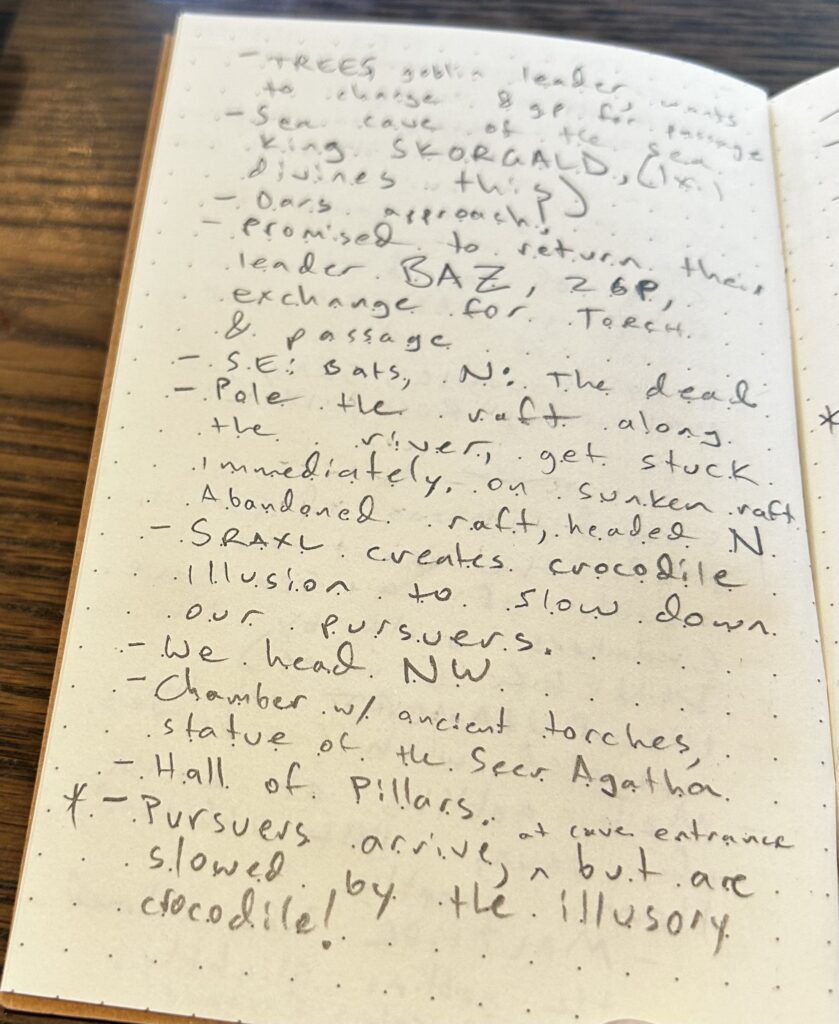 - TREES, goblin leader, wants
to charge 8 gp for passage
- Sea cave of the sea
king SKORGALD, (Ix.
divines this)
- Oars approach!
- promised to return their
leader BAZ, 2 GP,
exchange for TORCH
& passage
- S.E: Bats, N: The dead
- Pole the raft along
the river, get stuck
immediately, on sunken raft
Abandoned raft, headed N
- SRAXL creates crocodile
illusion to slow down
our pursuers.
- We head NW
- Chamber w/ ancient torches,
statue of the Seer Agatha
- Hall of Pillars.
* - Pursuers arrive, ^ at cave entrance but are
slowed by the illusory
crocodile!